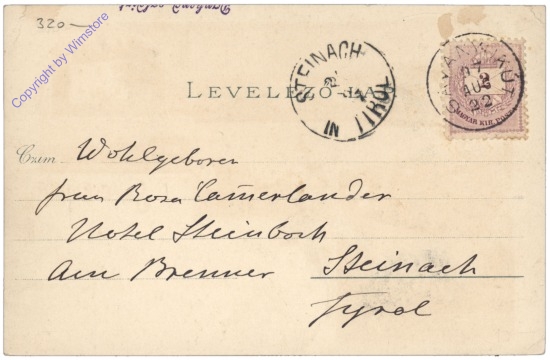 320.—
Copyright by Wimstore
LEVELEZŐ-LAP
STEINACH
IN TIROL
SAVANYÚKÚT
97
AUG
22
MAGYAR KIR. POSTA
Czim:
Wohlgeboren
frau Rosa Camerlander
Hotel Steinbock
Am Brenner Steinach
Tyrol